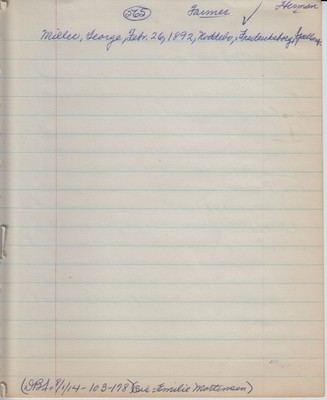 565 Farmer ✓ Herman
Miller, George, Febr. 26, 1892, Nodebo, Frederiksborg,
(DBS. 9/1/14-103-178) (Sis = Emilie Mortensen)